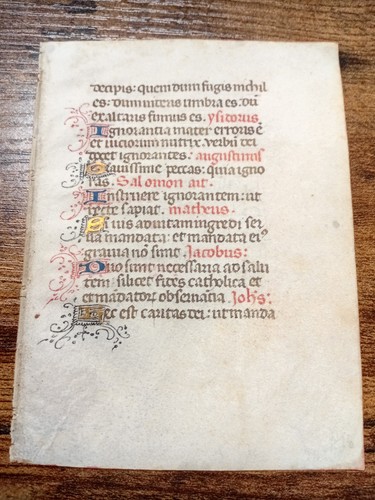 decipis: quem dum fugis nichil
es: dum iteris umbra es: dũ
exaltaris fumus es. ysidorus.
Ignorantia mater erroris ẽ
et viciorum nutrix. verbũ dei
docet ignorantes. augustinus
Gravissime peccas: quia igno
ras. Salomon ait.
Instruere ignorantem: ut
recte sapiat. matheus.
Si vis ad vitam ingredi ser
va mandata: et mandata ei9
gravia nõ sunt. Jacobus:
Duo sunt necessaria ad salu
tem: silicet fides catholica et
et mãdator observãtia. Joh̃s.
Hec est caritas dei: ut manda